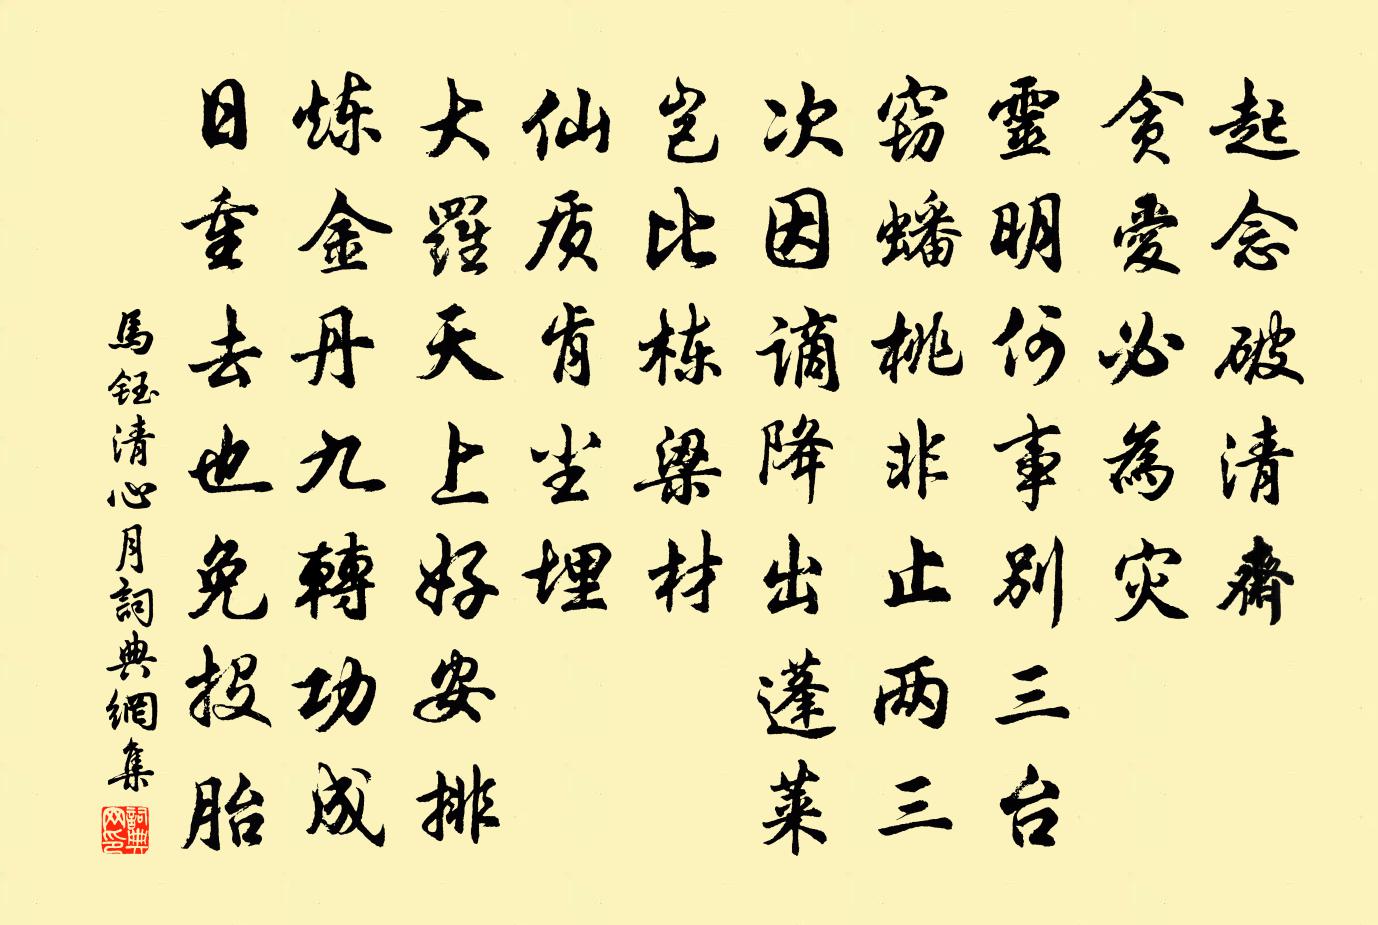 起念破清齋
贪愛必為灾
靈明何事别三台
窃蟠桃非止两三
次因谪降出蓬莱
岂比栋梁材
仙质肯尘埋
大羅天上好安排
炼金丹九轉功成
日重去也免投胎
馬鈺清心月詞典網集
詞典网印